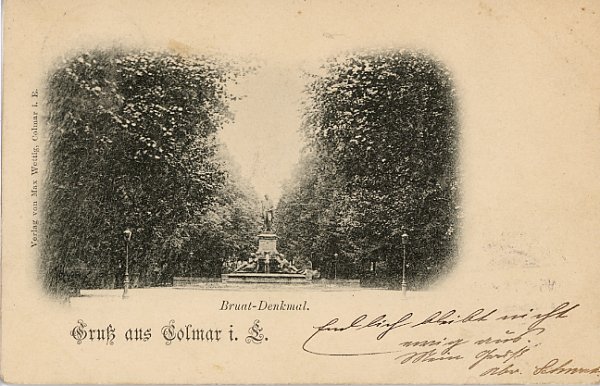 Verlag von Max Wettig, Colmar i. E.
Bruat-Denkmal.
Gruß aus Colmar i. E.
Endlich bleibt nicht
ewig aus.